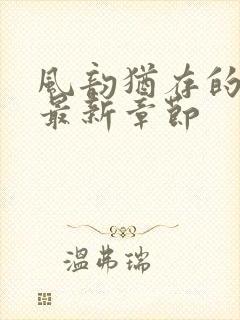 風韵猶存的
最新章節
温弗瑞